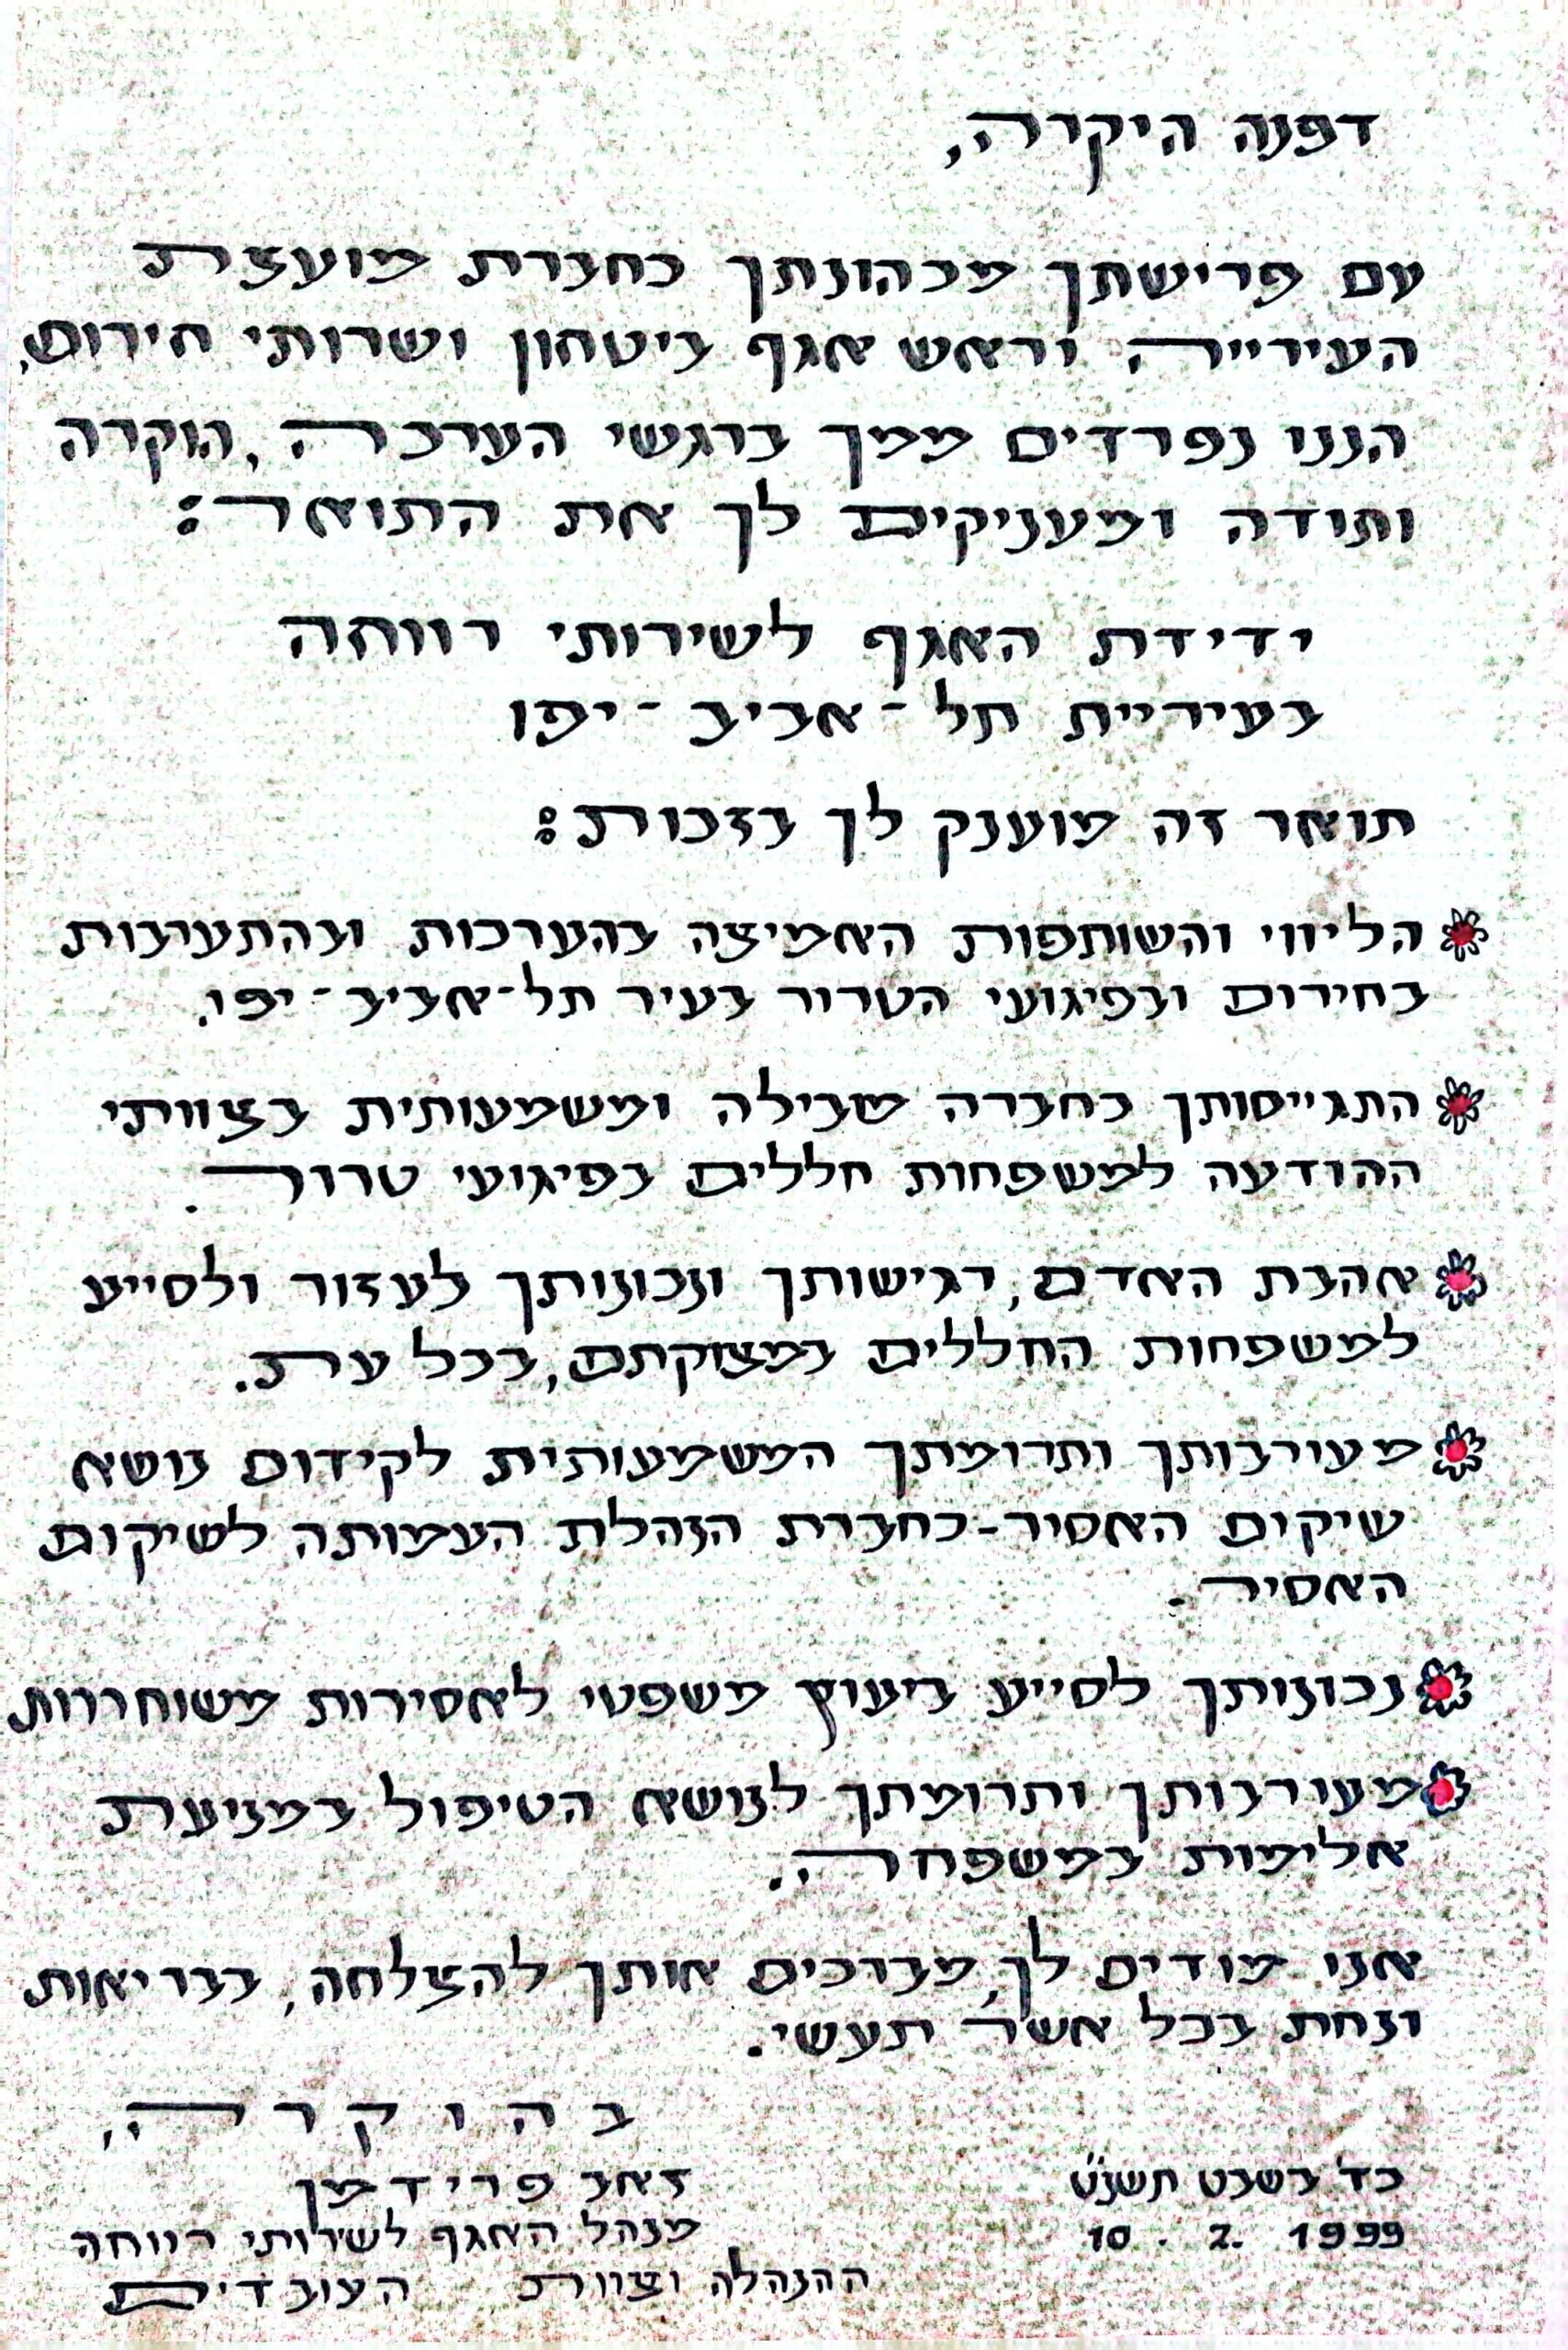 דפנה היקרה,
עם פרישתך מכהונתך כחברת מועצת
העירייה וראש אגף ביטחון ושרותי חירום,
הננו נפרדים ממך ברגשי הערכה, הוקרה
ותודה ומעניקים לך את התואר:
ידידת האגף לשירותי רווחה
בעיריית תל-אביב-יפו
תואר זה מוענק לך בזכות:
הליווי והשותפות האמיצה בהערכות ובהתערבות
בחירום ובפיגועי הטרור בעיר תל-אביב-יפו.
התגייסותך כחברה מובילה ומשמעותית בצוותי
ההודעה למשפחות חללים בפיגועי טרור.
אהבת האדם, רגישותך ונכונותך לעזור ולסייע
למשפחות החללים במצוקתם, בכל עת.
מעורבותך ותרומתך המשמעותית לקידום נושא
שיקום האסיר-כחברת הנהלת העמותה לשיקום
האסיר.
נכונותך לסייע ביעוץ משפטי לאסירות משוחררות
מעורבותך ותרומתך לנושא הטיפול במניעת
אלימות במשפחה.
אנו מודים לך, מברכים אותך להצלחה, בבריאות
ונחת בכל אשר תעשי.
בהוקרה,
כד בשבט תשנ"ט
10. 2. 1999
זאב פרידמן
מנהל האגף לשירותי רווחה
ההנהלה וצוות העובדים